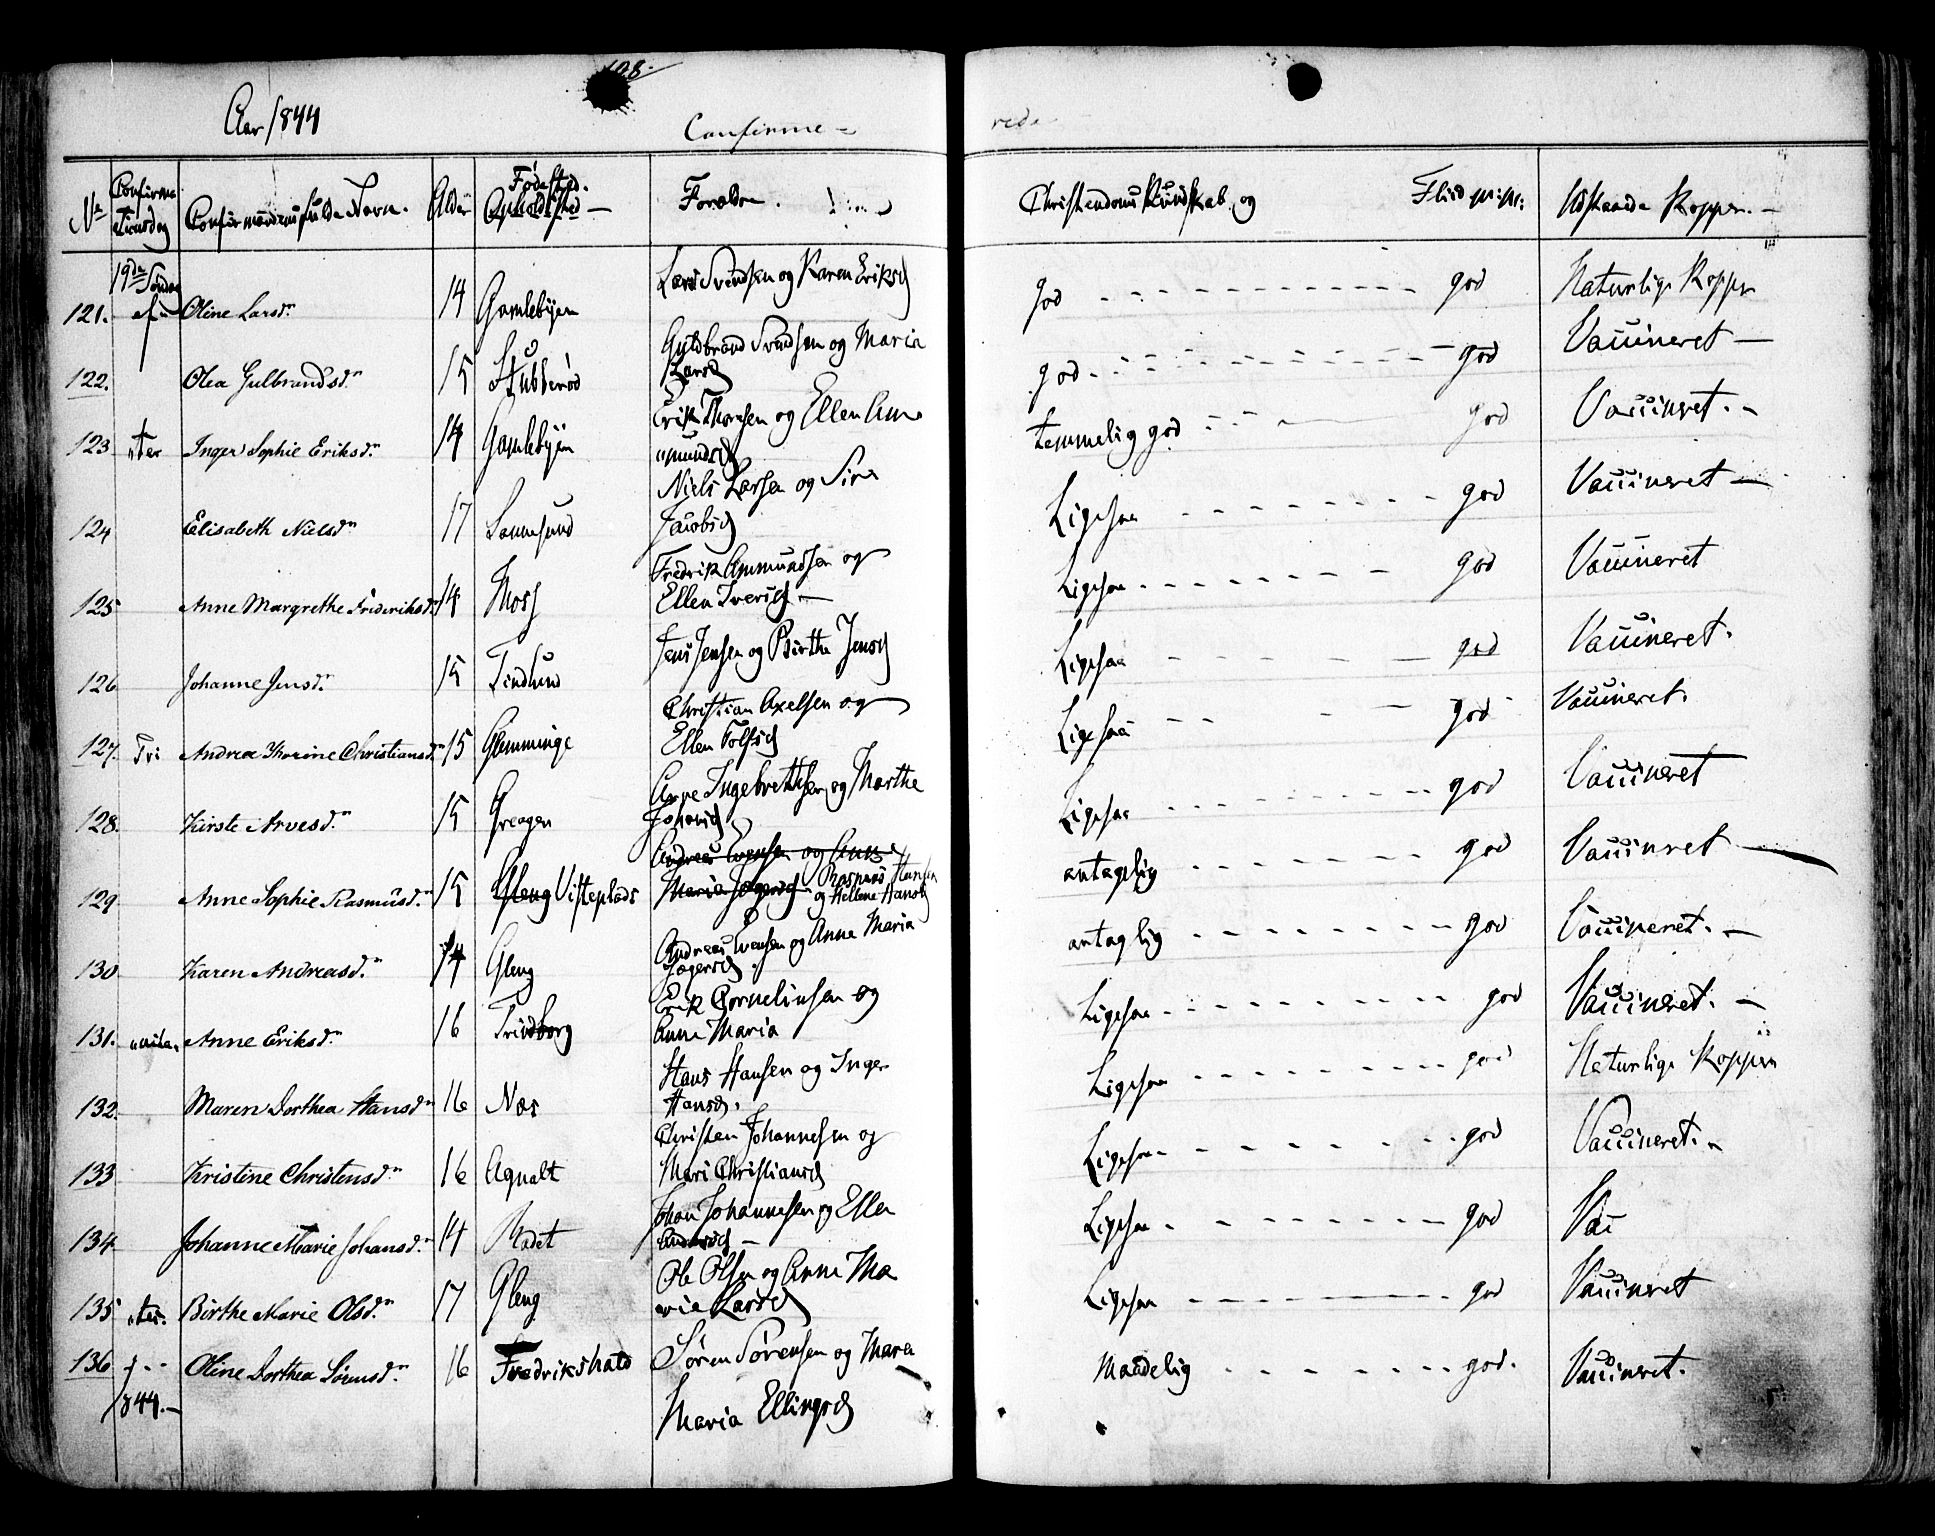 128.
Aar 1844
Confirme = rede
No Confirmationsdag Confirmandens fulde Navn. Alder Fødested. Opholdsted — Forældre. Christendoms Kundskab og Flid m: m: Udstaaede Kopper. —
19de Søndag
121. Oline Larsdn 14 Gamlebyen Lars Svendsen og Karen Eriksd god god Naturlige Kopper
122. Olea Gulbrandsdn 15 Stubberød Guldbrand Svendsen og Maria
Larsd god god Vaccineret —
123 "ter Inger Sophie Eriksdn 14 Gamlebyen Erik Thoresen og Ellen Am
"mundsd temmelig god god Vaccineret. —
124 Elisabeth Nielsdn 17 Sannesund Niels Larsen og Siri
Jacobsd Ligesaa god Vaccineret —
125 Anne Margrethe Frideriksdn 14 Moss Fredrik Ammundsen og
Ellen Iversd — Ligesaa god Vaccineret
126 Johanne Jensdn 15 Tindlund Jens Jensen og Birthe Jensd Ligesaa god Vaccineret.
127. Tri Andrea Thorine Christiansdn 15 Glemminge Christian Axelsen og
Ellen Tolfsd Ligesaa god Vaccineret.
128. Kirste Arvesdn 15 Greagen Arve Ingebrethsen og Marthe
Johansd Ligesaa god Vaccineret
129 Anne Sophie Rasmusdn 15 Gleng Visteplads Andreas Evensen og Anne
Maria Jøgersd Rasmus Hansen
og Hellene Hansd antagelig god Vaccineret —
130 Karen Andreasdn 14 Gleng Andreas Evensen og Anne Maria
Jøgersd antaglig god Vaccineret. —
131. "nita. Anne Eriksdn 16 Trindborg Erik Cornelinsen og
Anne Maria Ligesaa god Vaccineret. —
132. Maren Dorthea Hansdn 16 Næs Hans Hansen og Inger
Hansd. Ligesaa god Naturlige Kopper
133 Kristine Christensdn 16 Agnalt Christen Johannesen og
Mari Christiansd Ligesaa god Vaccineret. —
134 Johanne Marie Johansdn 14 Johan Johannesen og Ellen
Andersd — Ligesaa god Vac
135 "tis. Birthe Marie Olsdn 17 Gleng Ole Olsen og Anne Ma
rie Larsd Ligesaa god Vaccineret
136 Oline Dorthea Sørensdn 16 Fredrikshald Søren Sørensen og Maren
Maria Ellingsd Maadelig god. Vaccineret.
1844. —